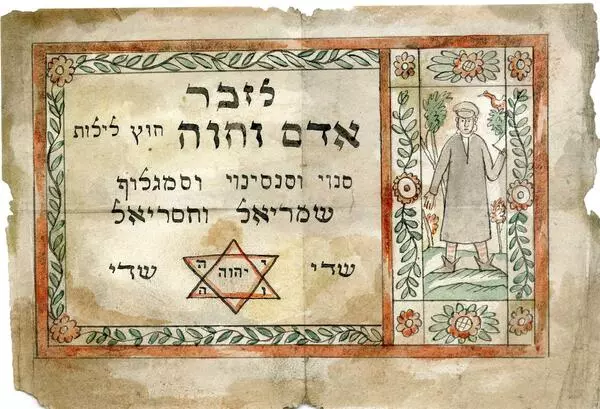 לזכר
אדם וחוה חוץ לילות
סנוי וסנסינוי וסמגלוף
שמריאל וחסריאל
שדי שדי
י ה
יהוה
ו ה